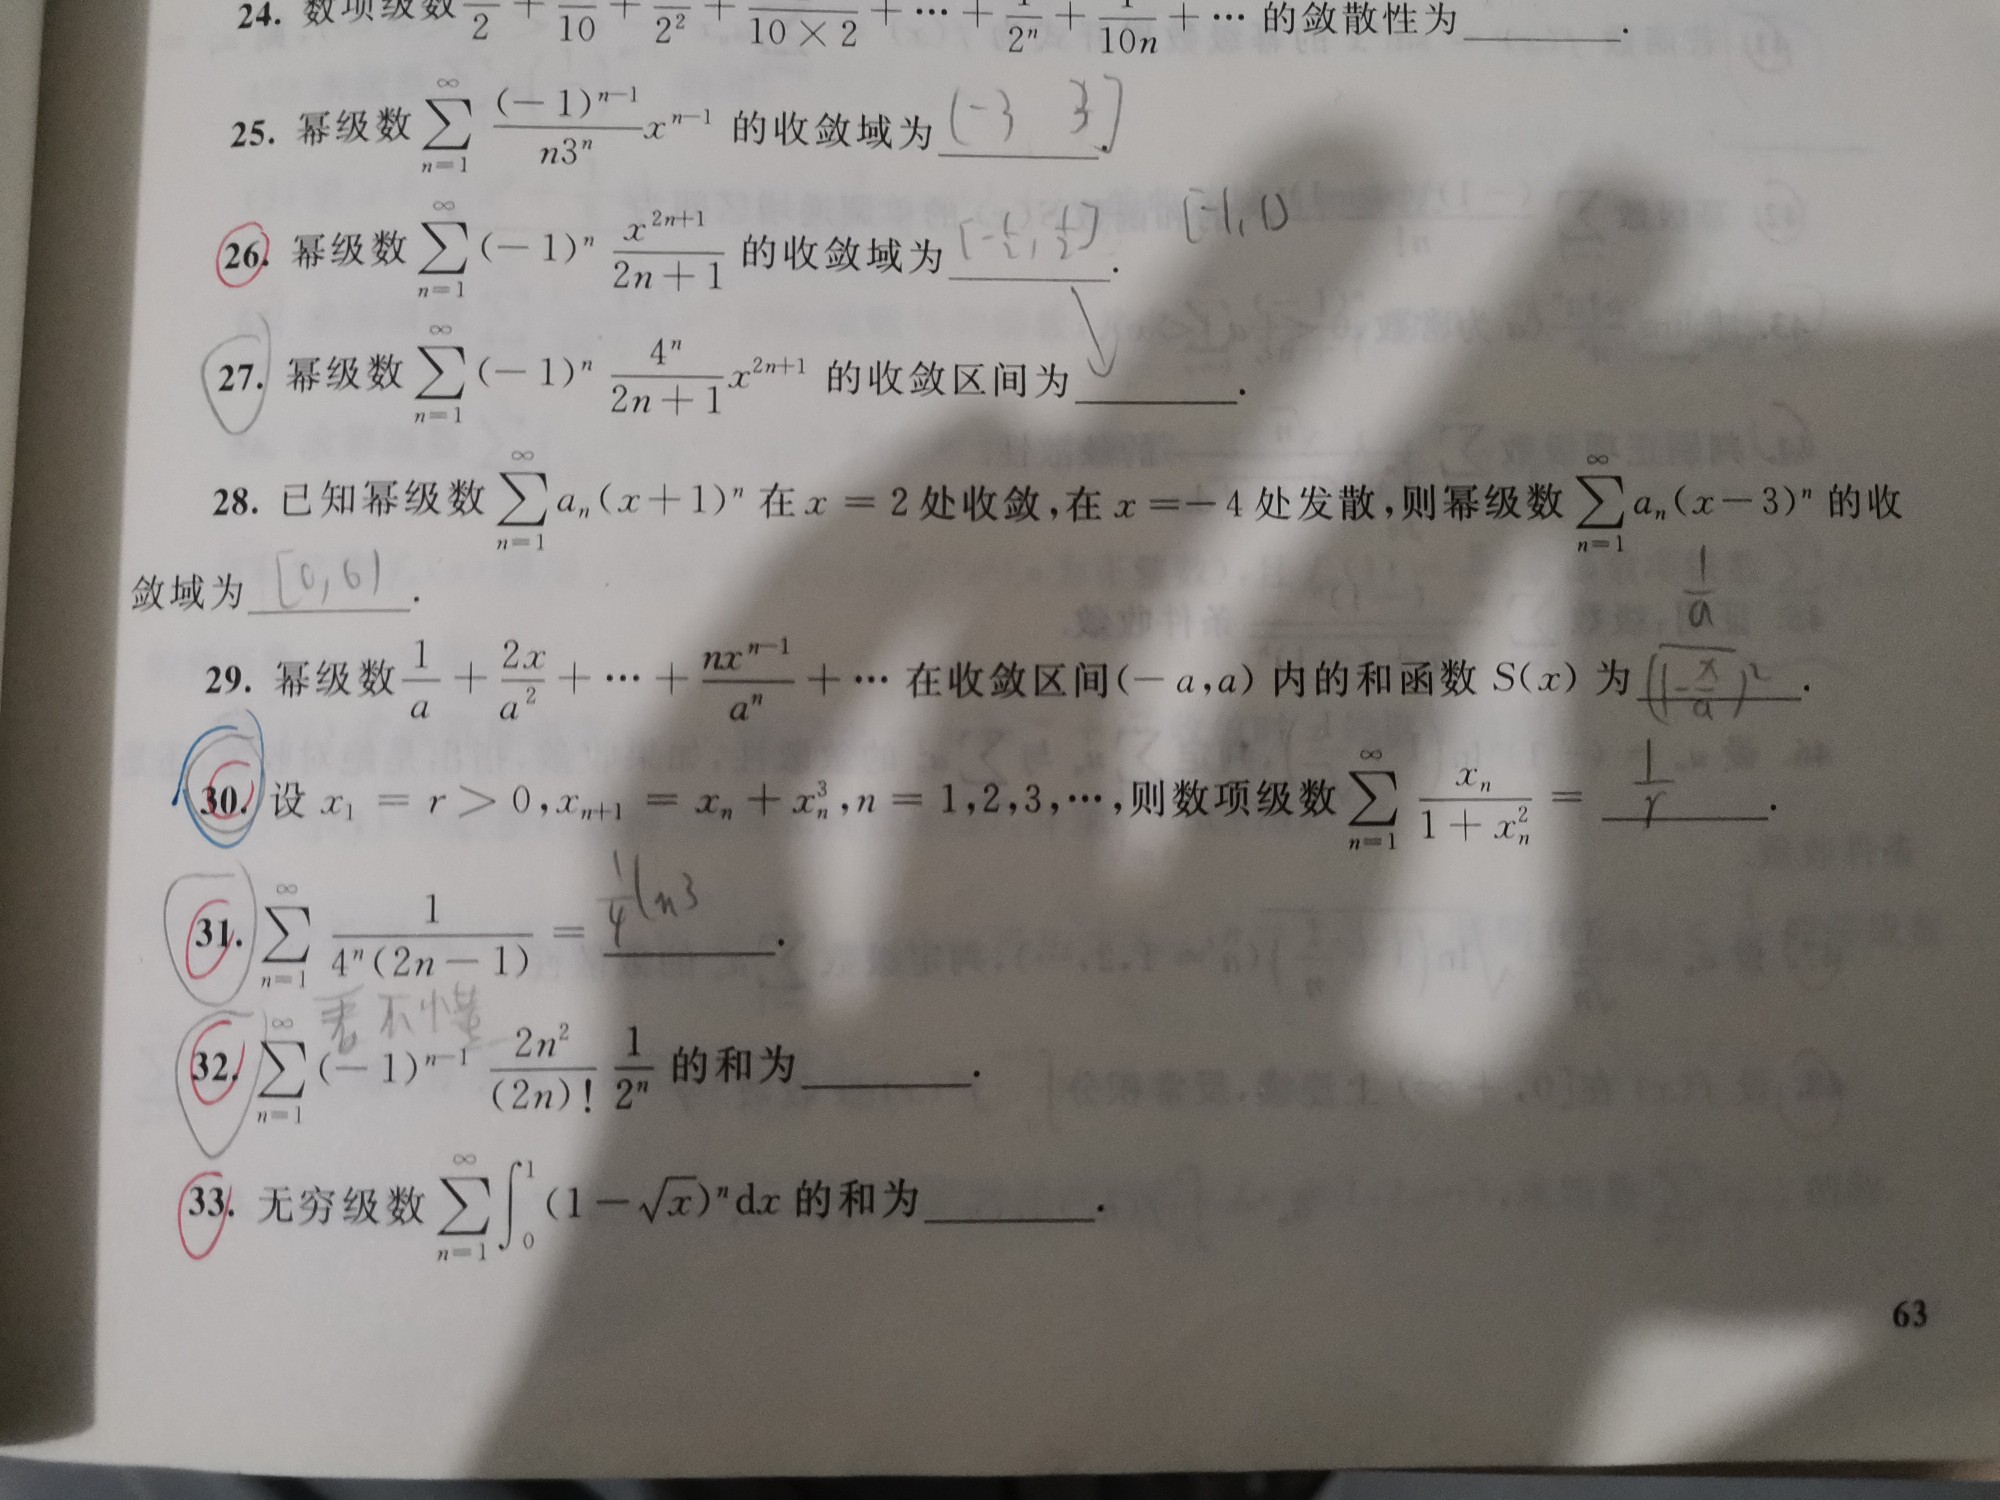 24. 数项级数 1/2 + 1/10 + 1/2² + 1/(10×2) + ⋯ + 1/2ⁿ + 1/10n + ⋯ 的敛散性为______.
25. 幂级数 ∑_{n=1}^{∞} (-1)^{n-1}/(n3ⁿ) x^{n-1} 的收敛域为 (-3 3] .
26. 幂级数 ∑_{n=1}^{∞} (-1)ⁿ x^{2n+1}/(2n+1) 的收敛域为 [-1/2, 1/2] . [-1, 1)
27. 幂级数 ∑_{n=1}^{∞} (-1)ⁿ 4ⁿ/(2n+1) x^{2n+1} 的收敛区间为______.
28. 已知幂级数 ∑_{n=1}^{∞} aₙ(x+1)ⁿ 在 x = 2 处收敛,在 x = -4 处发散,则幂级数 ∑_{n=1}^{∞} aₙ(x-3)ⁿ 的收
敛域为 [0,6) .
29. 幂级数 1/a + 2x/a² + ⋯ + nx^{n-1}/aⁿ + ⋯ 在收敛区间(-a,a) 内的和函数 S(x) 为 (1/a)/(1-x/a)² .
30. 设 x₁ = r > 0, x_{n+1} = xₙ + xₙ³, n = 1,2,3,⋯,则数项级数 ∑_{n=1}^{∞} xₙ/(1+xₙ²) = 1/r .
31. ∑_{n=1}^{∞} 1/(4ⁿ(2n-1)) = 1/4 ln3 .
看不懂
32. ∑_{n=1}^{∞} (-1)^{n-1} 2n²/(2n)! 1/2ⁿ 的和为______.
33. 无穷级数 ∑_{n=1}^{∞} ∫₀¹ (1-√x)ⁿ dx 的和为______.
63